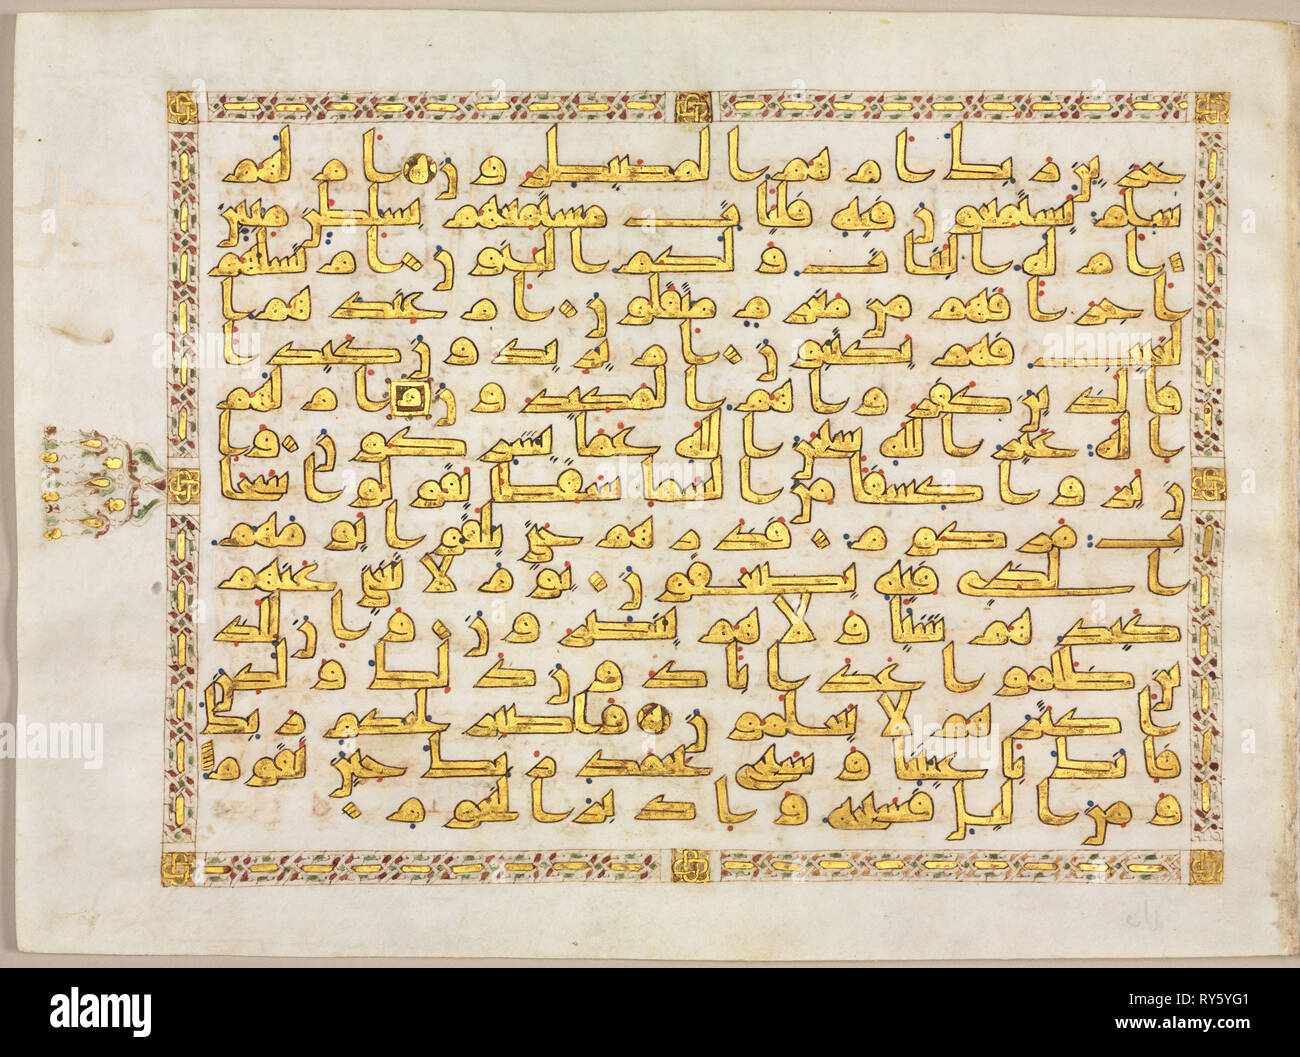 خزين ربك ام هم المصيطرون ام لهم
سلم يستمعون فيه فليات مستمعهم بسلطن مبين
ام له البنت ولكم البنون ام تسلهم
اجرا فهم من مغرم مثقلون ام عندهم ا
لغيب فهم يكتبون ام يريدون كيدا
فالذين كفروا هم المكيدون ام لهم
اله غير الله سبحن الله عما يشركون وا
ن يروا كسفا من السما سقطا يقولوا سحا
ب مركوم فذرهم حتى يلقوا يومهم
الذي فيه يصعقون يوم لا يغني عنهم
كيدهم شيا ولا هم ينصرون وان للذ
ين ظلموا عذابا دون ذلك ولكن
اكثرهم لا يعلمون واصبر لحكم ربك
فانك باعيننا وسبح بحمد ربك حين تقوم
ومن الليل فسبحه وادبر النجوم
alamy
Image ID: RY5YG1
www.alamy.com